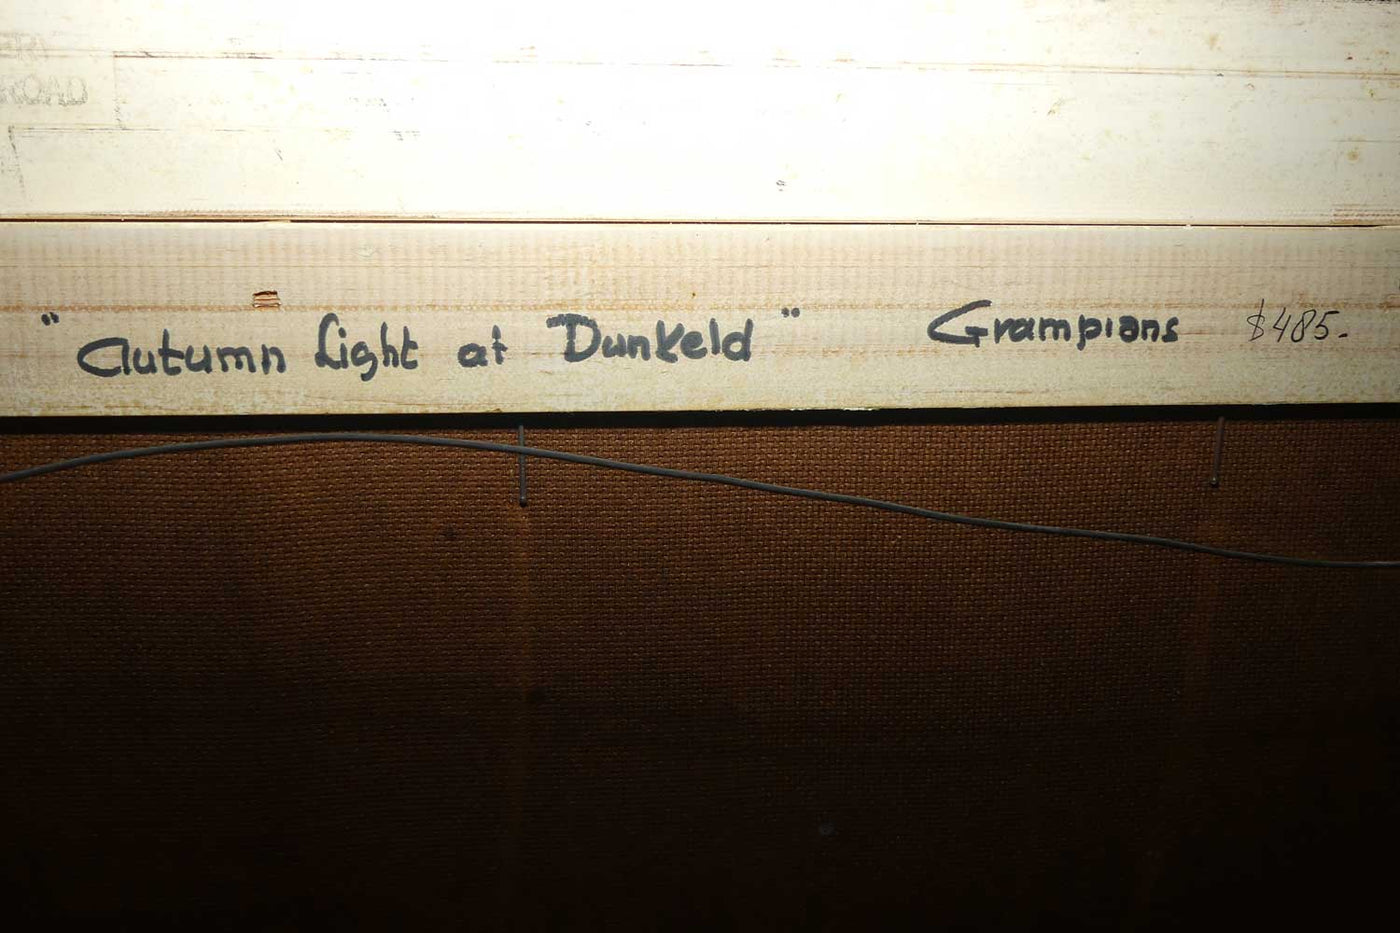 "Autumn Light at Dunkeld" Grampians $485.-